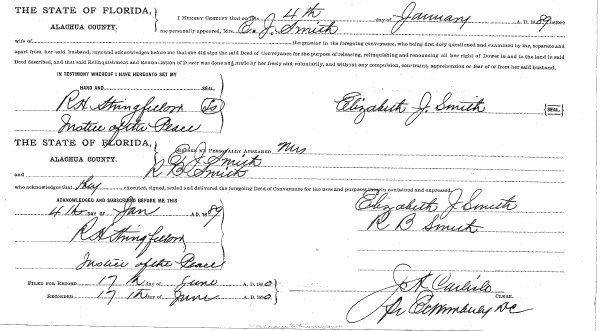 THE STATE OF FLORIDA,
ALACHUA COUNTY.
I HEREBY CERTIFY that on this 4th day of January A. D. 1889 before
me personally appeared, Mrs. E. J. Smith
wife of the grantor in the foregoing conveyance, who being first duly questioned and examined by me, separate and
apart from her said husband, says and acknowledges before me that she did sign the said Deed of Conveyance for the purpose of releasing, relinquishing and renouncing all her right of Dower in and to the land in said
Deed described, and that said Relinquishment and Renunciation of Dower was done and made by her freely and voluntarily, and without any compulsion, constraint, apprehension or fear of or from her said husband.
IN TESTIMONY WHEREOF I HAVE HEREUNTO SET MY
HAND AND SEAL.
R H Stringfellow
Elizabeth J. Smith SEAL.
Justice of the Peace
THE STATE OF FLORIDA,
ALACHUA COUNTY.
BEFORE ME PERSONALLY APPEARED Mrs
E J Smith
and R B Smith
who acknowledges that they executed, signed, sealed and delivered the foregoing Deed of Conveyance for the uses and purposes therein contained and expressed.
ACKNOWLEDGED AND SUBSCRIBED BEFORE ME THIS
4th DAY OF Jan A. D. 1889
Elizabeth J Smith
R B Smith
R H Stringfellow
Justice of the Peace
FILED FOR RECORD 17th day of June A. D. 1890
RECORDED 17th day of June A. D. 1890
J A Carlisle
CLERK.
DC